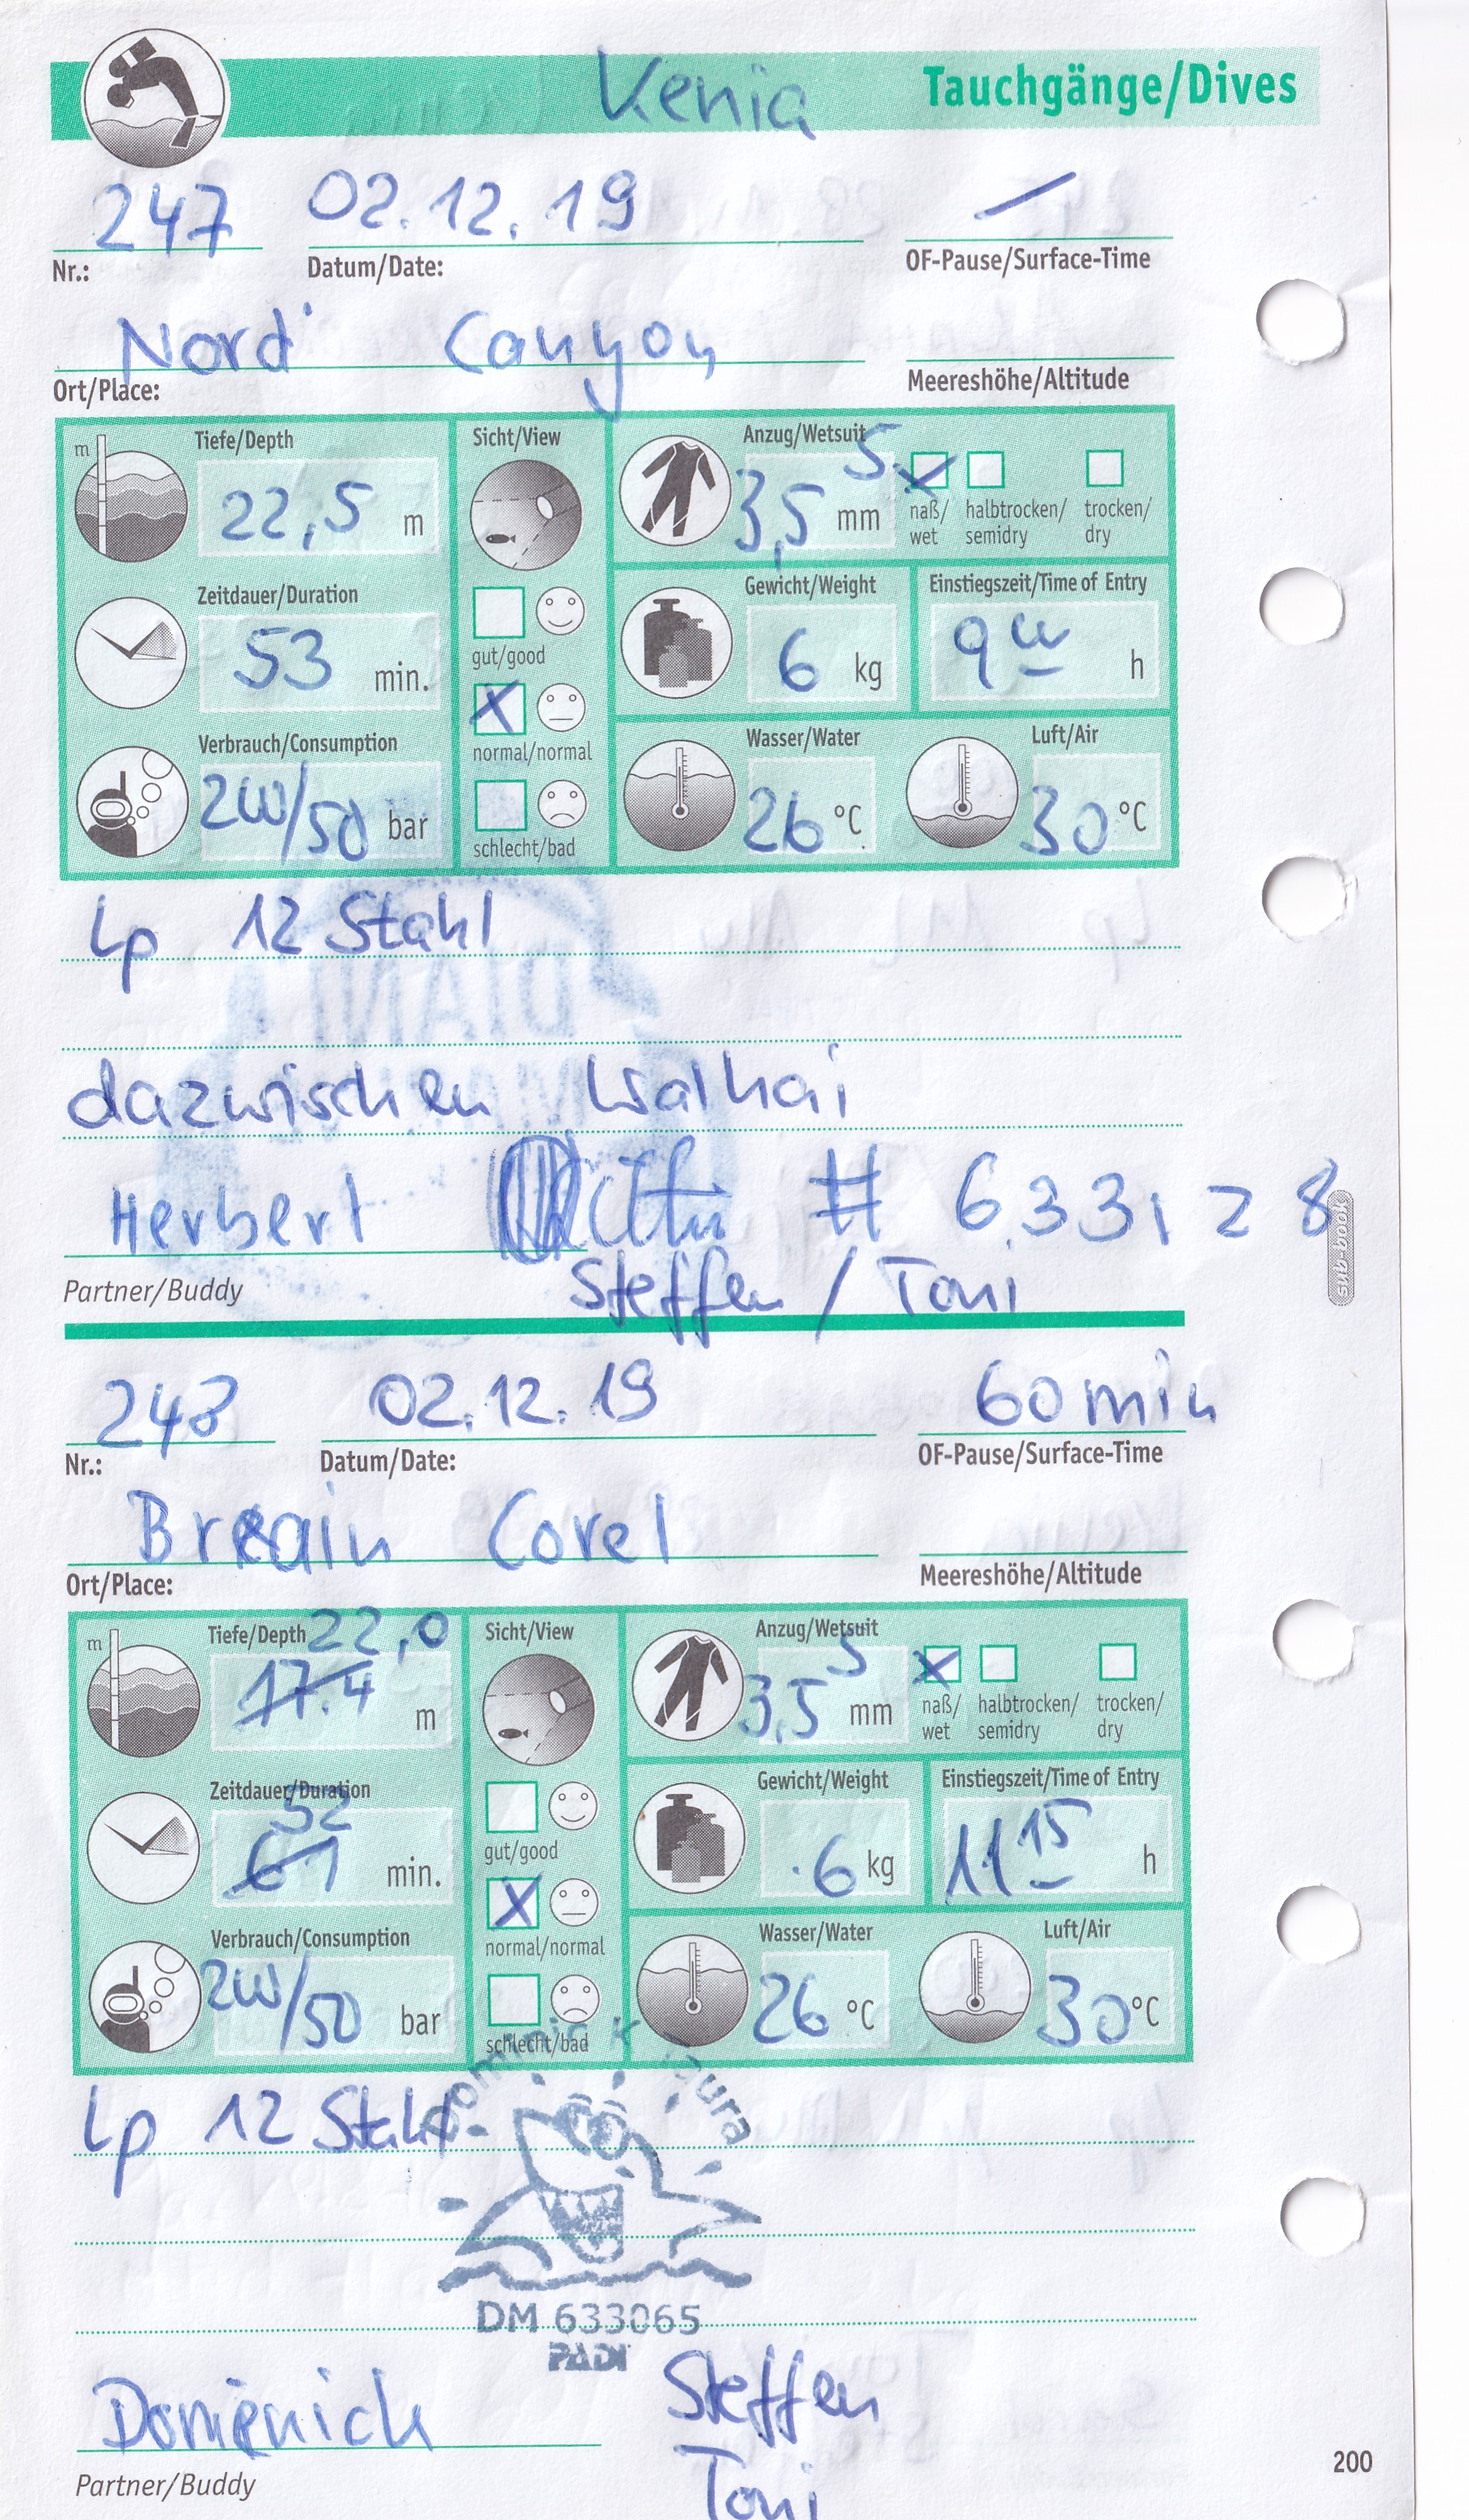 Kenia Tauchgänge/Dives
247 02.12.19
Nr.: Datum/Date: OF-Pause/Surface-Time
Nord Canyon
Ort/Place: Meereshöhe/Altitude
Tiefe/Depth Sicht/View Anzug/Wetsuit 5
m 22,5 m 3,5 mm naß/wet halbtrocken/semidry trocken/dry
Zeitdauer/Duration Gewicht/Weight Einstiegszeit/Time of Entry
53 min. gut/good 6 kg 9 00 h
normal/normal
Verbrauch/Consumption Wasser/Water Luft/Air
200/50 bar schlecht/bad 26 °C 30 °C
Lp 12 Stahl
DIANI
dazwischen Walhai
Herbert # 633128
Partner/Buddy Steffen / Toni
sub-book
248 02.12.19 60 min
Nr.: Datum/Date: OF-Pause/Surface-Time
Breain Corel
Ort/Place: Meereshöhe/Altitude
Tiefe/Depth 22,0 Sicht/View Anzug/Wetsuit 5
m 17.4 m 3,5 mm naß/wet halbtrocken/semidry trocken/dry
Zeitdauer/Duration 52 Gewicht/Weight Einstiegszeit/Time of Entry
61 min. gut/good 6 kg 11 15 h
normal/normal
Verbrauch/Consumption Wasser/Water Luft/Air
200/50 bar schlecht/bad 26 °C 30 °C
Lp 12 Stahl
DM 633065
PADI
Domenick Steffen
Partner/Buddy Toni
200